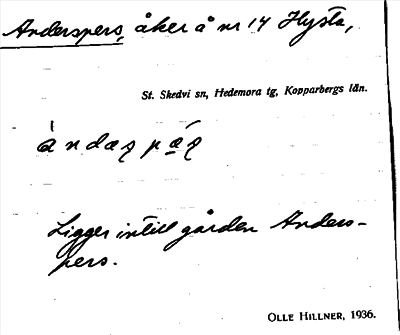 Anderspers, åker å nr 14 Hysta,
St. Skedvi sn, Hedemora tg, Kopparbergs län.
Ligger intill gården Anders-
pers.
OLLE HILLNER, 1936.